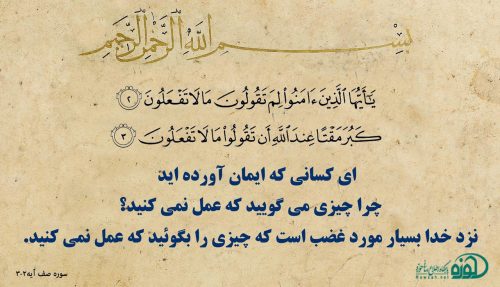 بِسْمِ اللَّهِ الرَّحْمَٰنِ الرَّحِيمِ
يَـٰٓأَيُّهَا ٱلَّذِينَ ءَامَنُوا۟ لِمَ تَقُولُونَ مَا لَا تَفْعَلُونَ ٢
كَبُرَ مَقْتًا عِندَ ٱللَّهِ أَن تَقُولُوا۟ مَا لَا تَفْعَلُونَ ٣
ای کسانی که ایمان آورده اید
چرا چیزی می گویید که عمل نمی کنید؟
نزد خدا بسیار مورد غضب است که چیزی را بگوئید که عمل نمی کنید.
سوره صف آیه۲-۳
حوزه
Hawzah.net